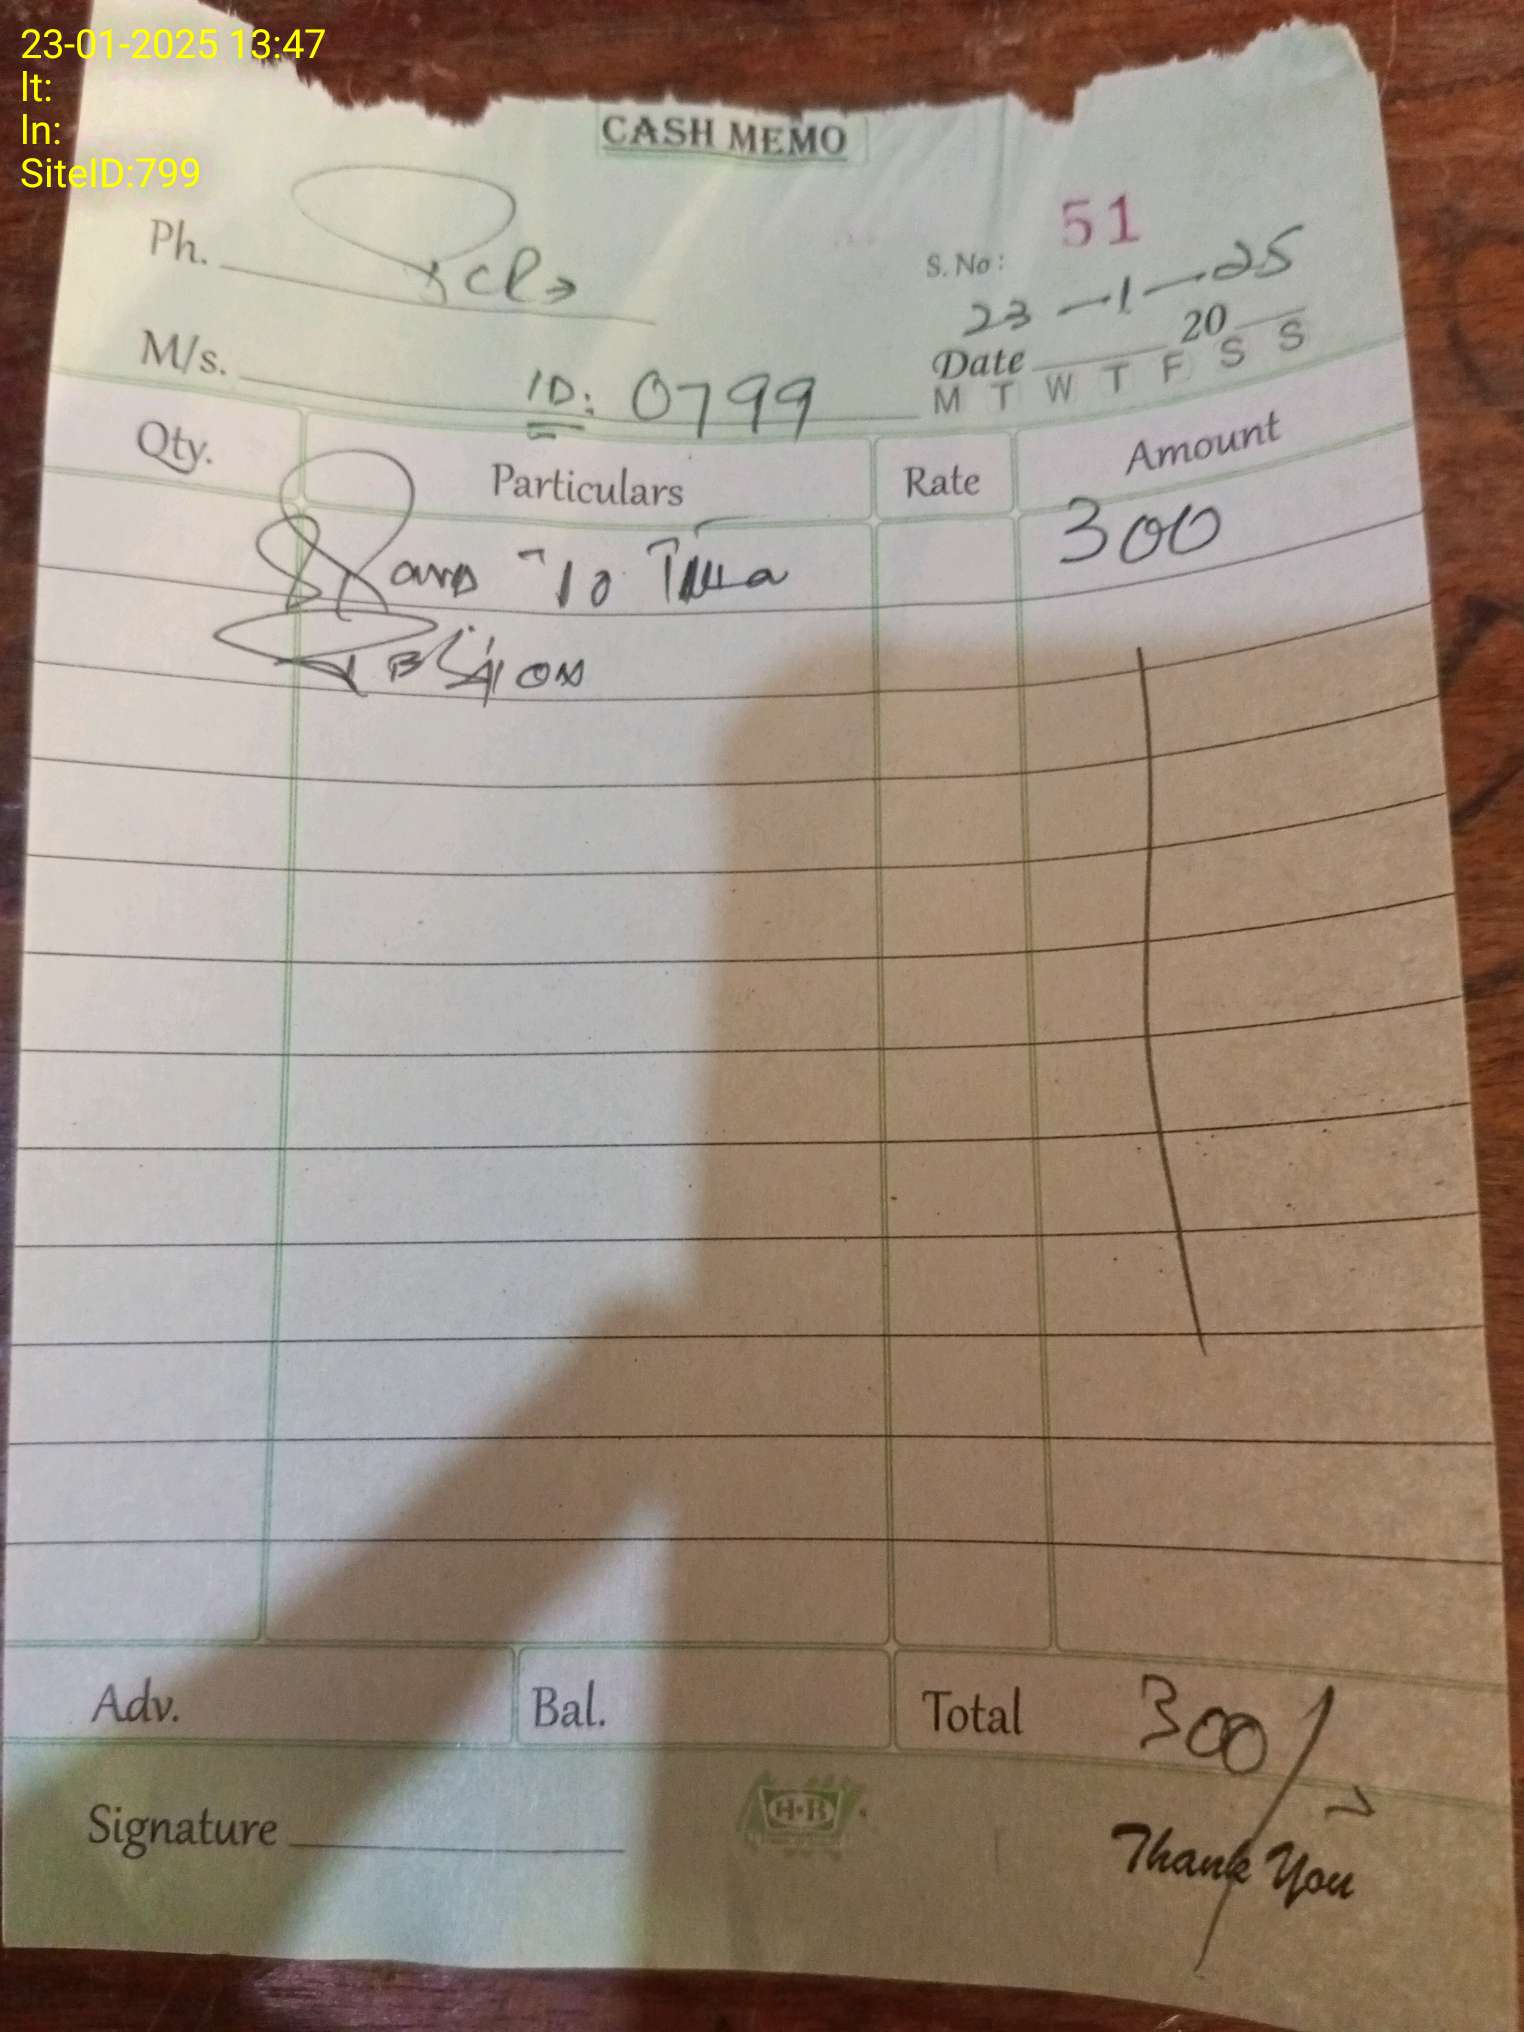 23-01-2025 13:47
lt:
ln:
SiteID:799
CASH MEMO
Ph.
S. No: 51
23-1-25
Date 20
M/s. ID: 0799
M T W T F S S
Qty. Particulars Rate Amount
To 300
Adv. Bal. Total 300/
Signature
H·R
Thank You